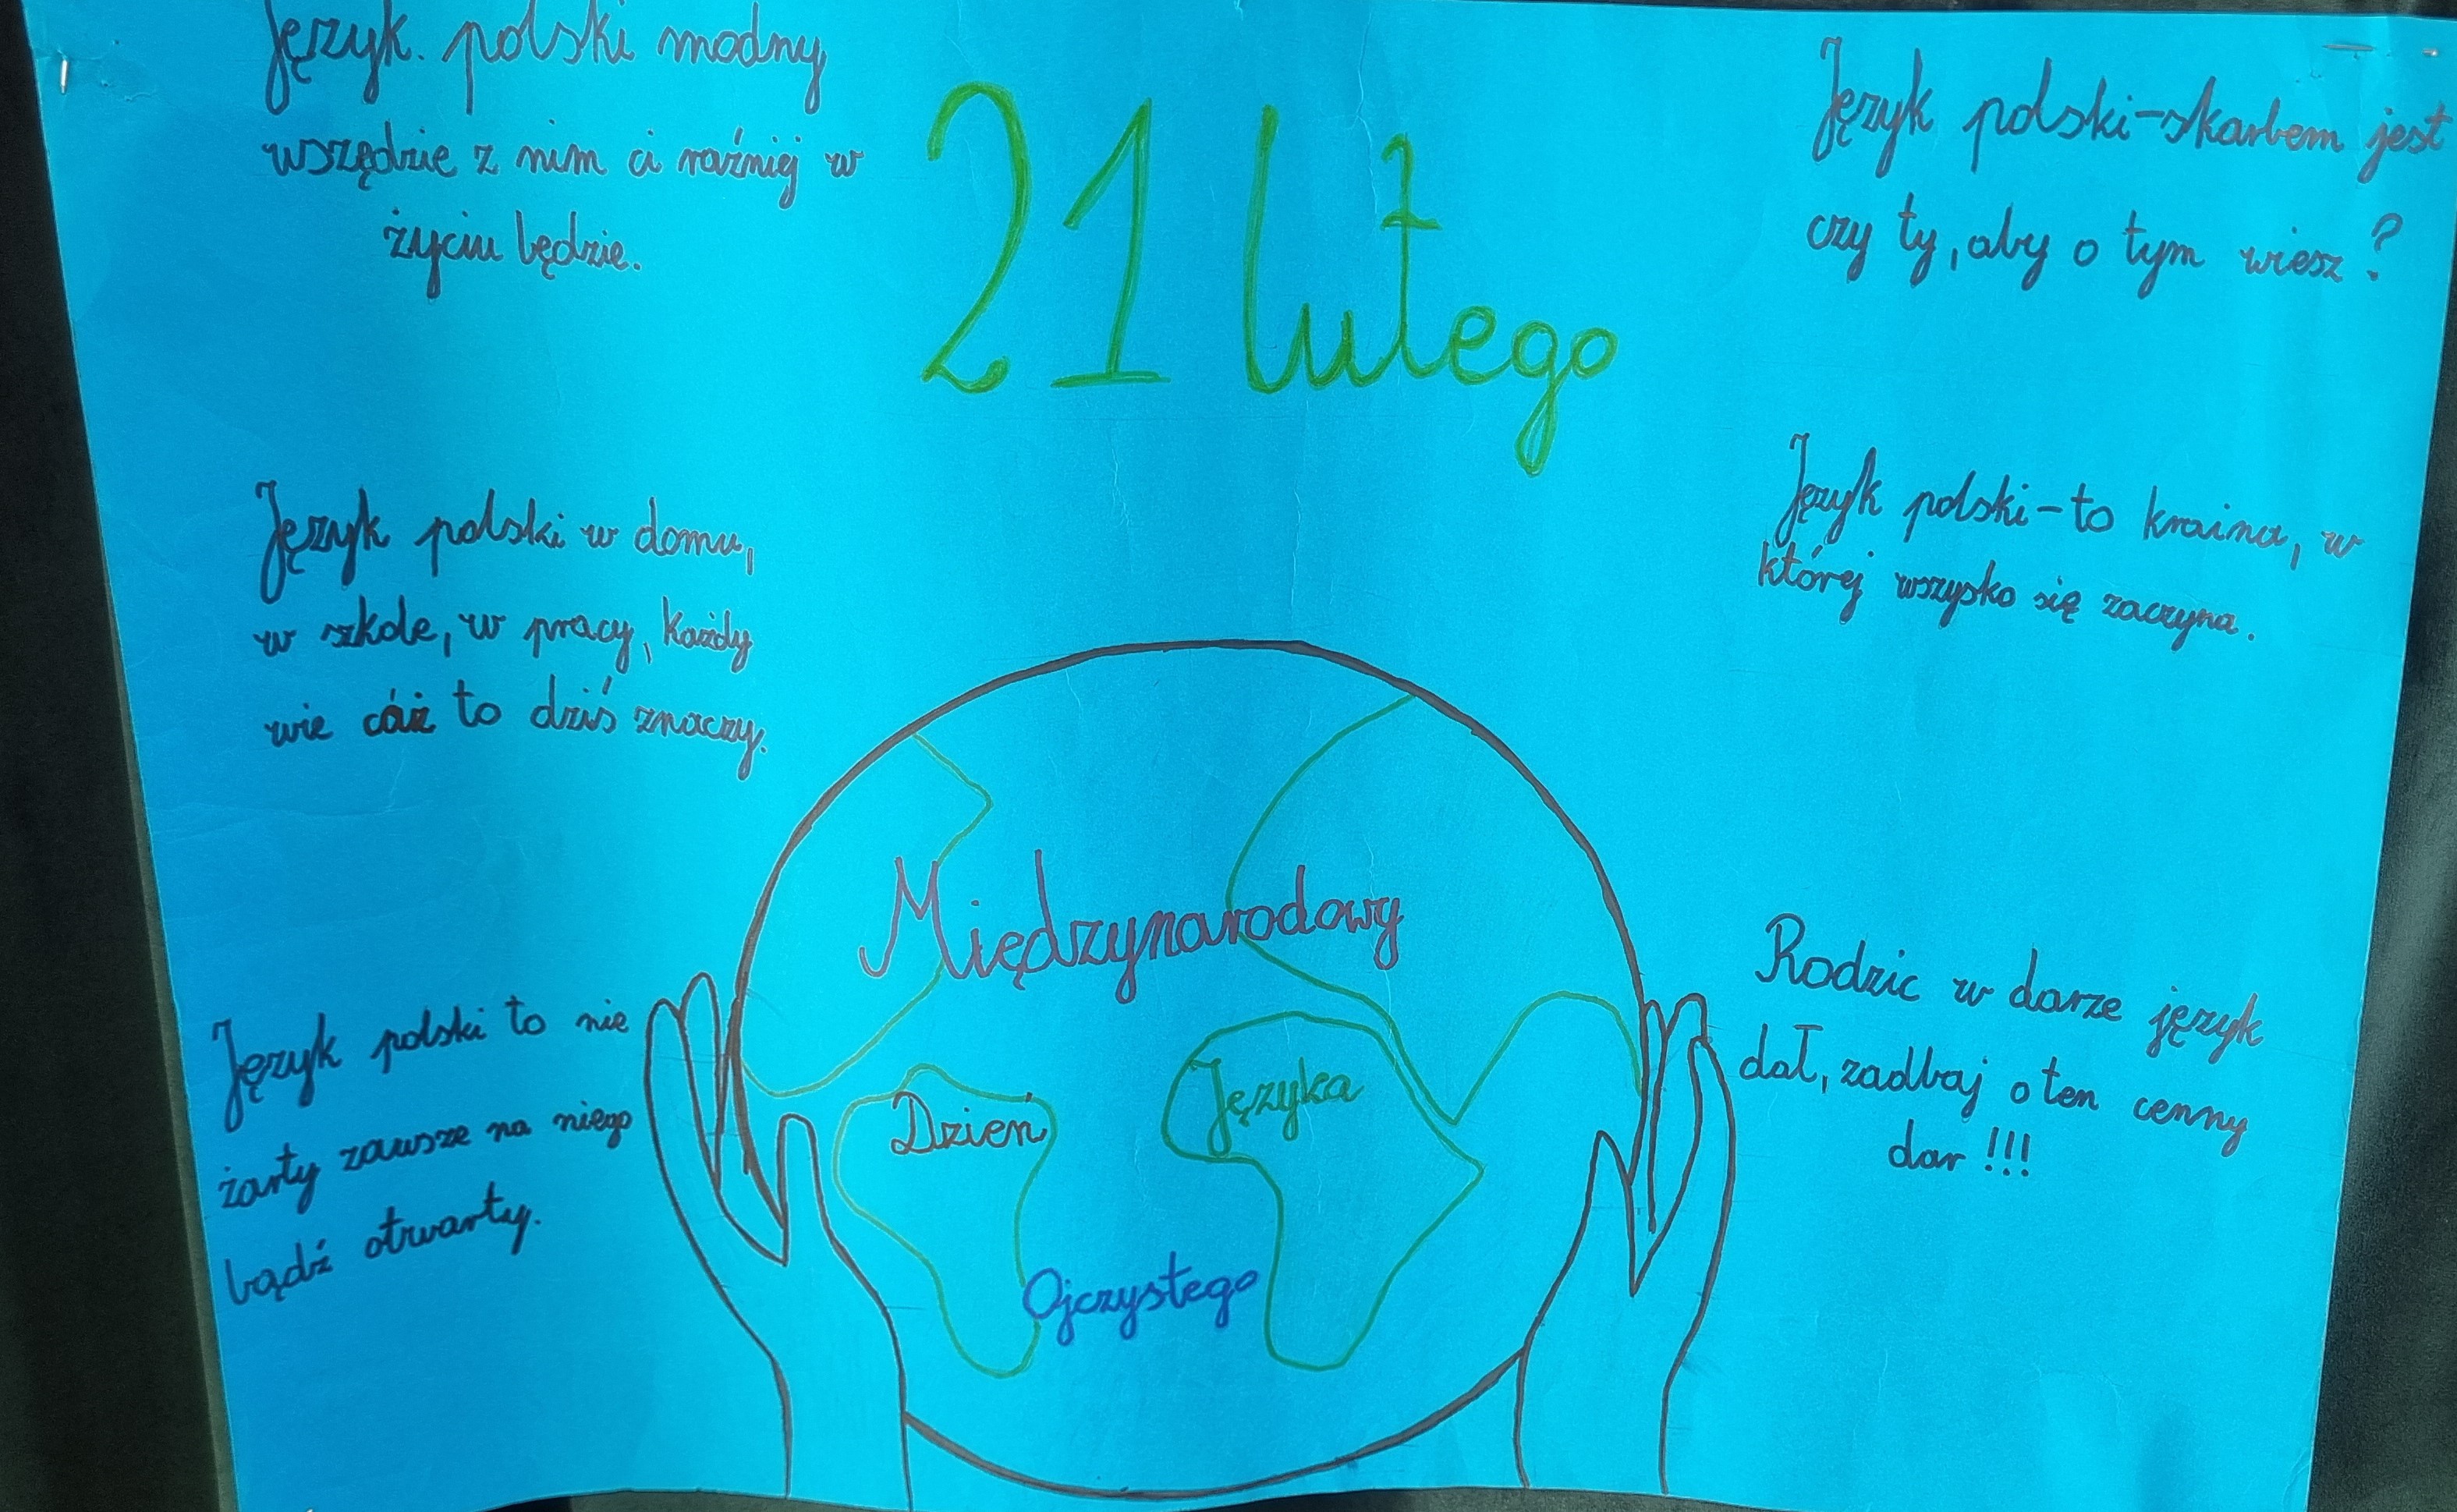 Język. polski modny
wszędzie z nim ci raźniej w
życiu będzie.
21 lutego
Język polski-skarbem jest
czy ty, aby o tym wiesz?
Język polski w domu,
w szkole, w pracy, każdy
wie cóż to dziś znaczy.
Język polski-to kraina, w
której wszysko się zaczyna.
Język polski to nie
żarty zawsze na niego
bądź otwarty.
Międzynarodowy
Dzień
Języka
Ojczystego
Rodzic w darze język
dał, zadbaj o ten cenny
dar!!!